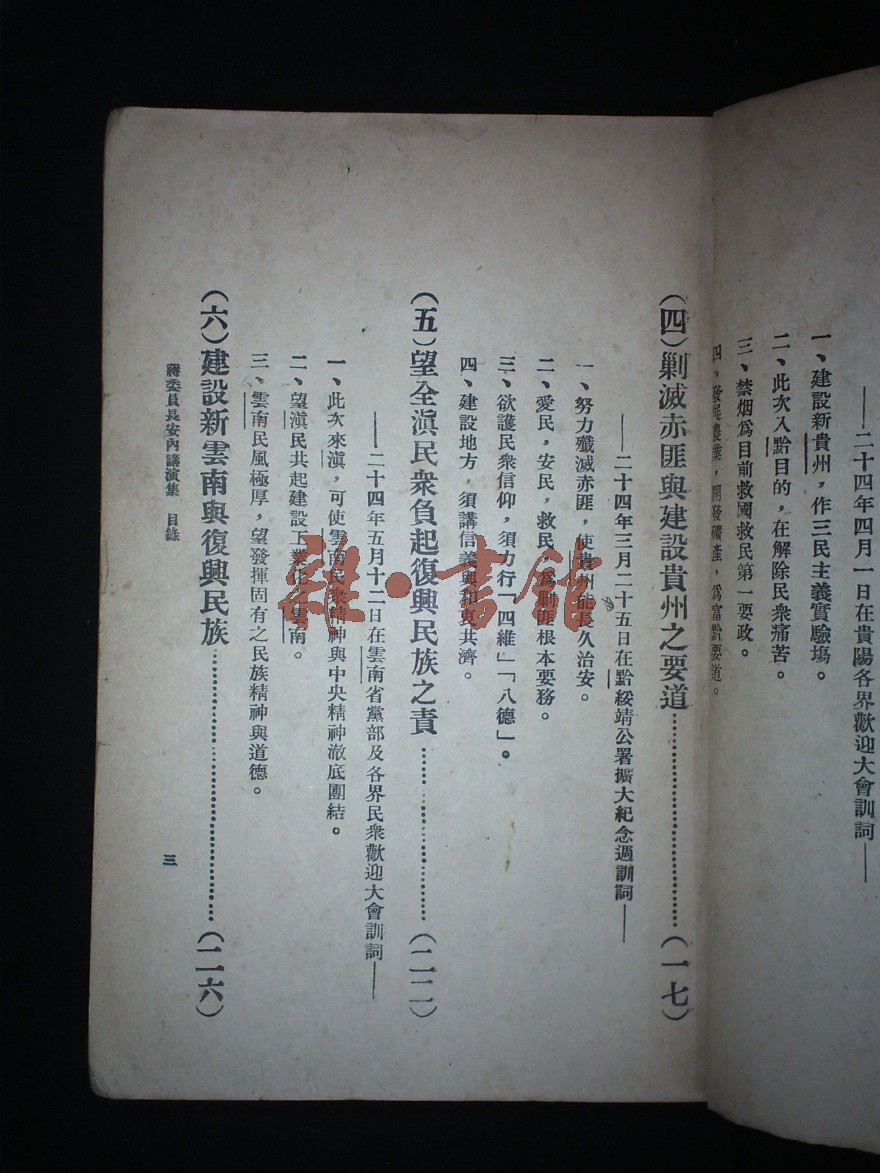 ——二十四年四月一日在貴陽各界歡迎大會訓詞——
一、建設新貴州，作三民主義實驗塲。
二、此次入黔目的，在解除民衆痛苦。
三、禁烟爲目前救國救民第一要政。
四、發展農業，開發礦產，爲富黔要道。
（四）剿滅赤匪與建設貴州之要道…………（一七）
——二十四年三月二十五日在黔綏靖公署擴大紀念週訓詞——
一、努力殲滅赤匪，使貴州能長久治安。
二、愛民，安民，救民，爲剿匪根本要務。
三、欲護民衆信仰，須力行「四維」「八德」。
四、建設地方，須講信義與和衷共濟。
（五）望全滇民衆負起復興民族之責…………（二二）
——二十四年五月十二日在雲南省黨部及各界民衆歡迎大會訓詞——
一、此次來滇，可使雲南民衆精神與中央精神澈底團結。
二、望滇民共起建設工業化之雲南。
三、雲南民風極厚，望發揮固有之民族精神與道德。
（六）建設新雲南與復興民族…………（二六）
蔣委員長安內講演集　目錄
三
雜·書館